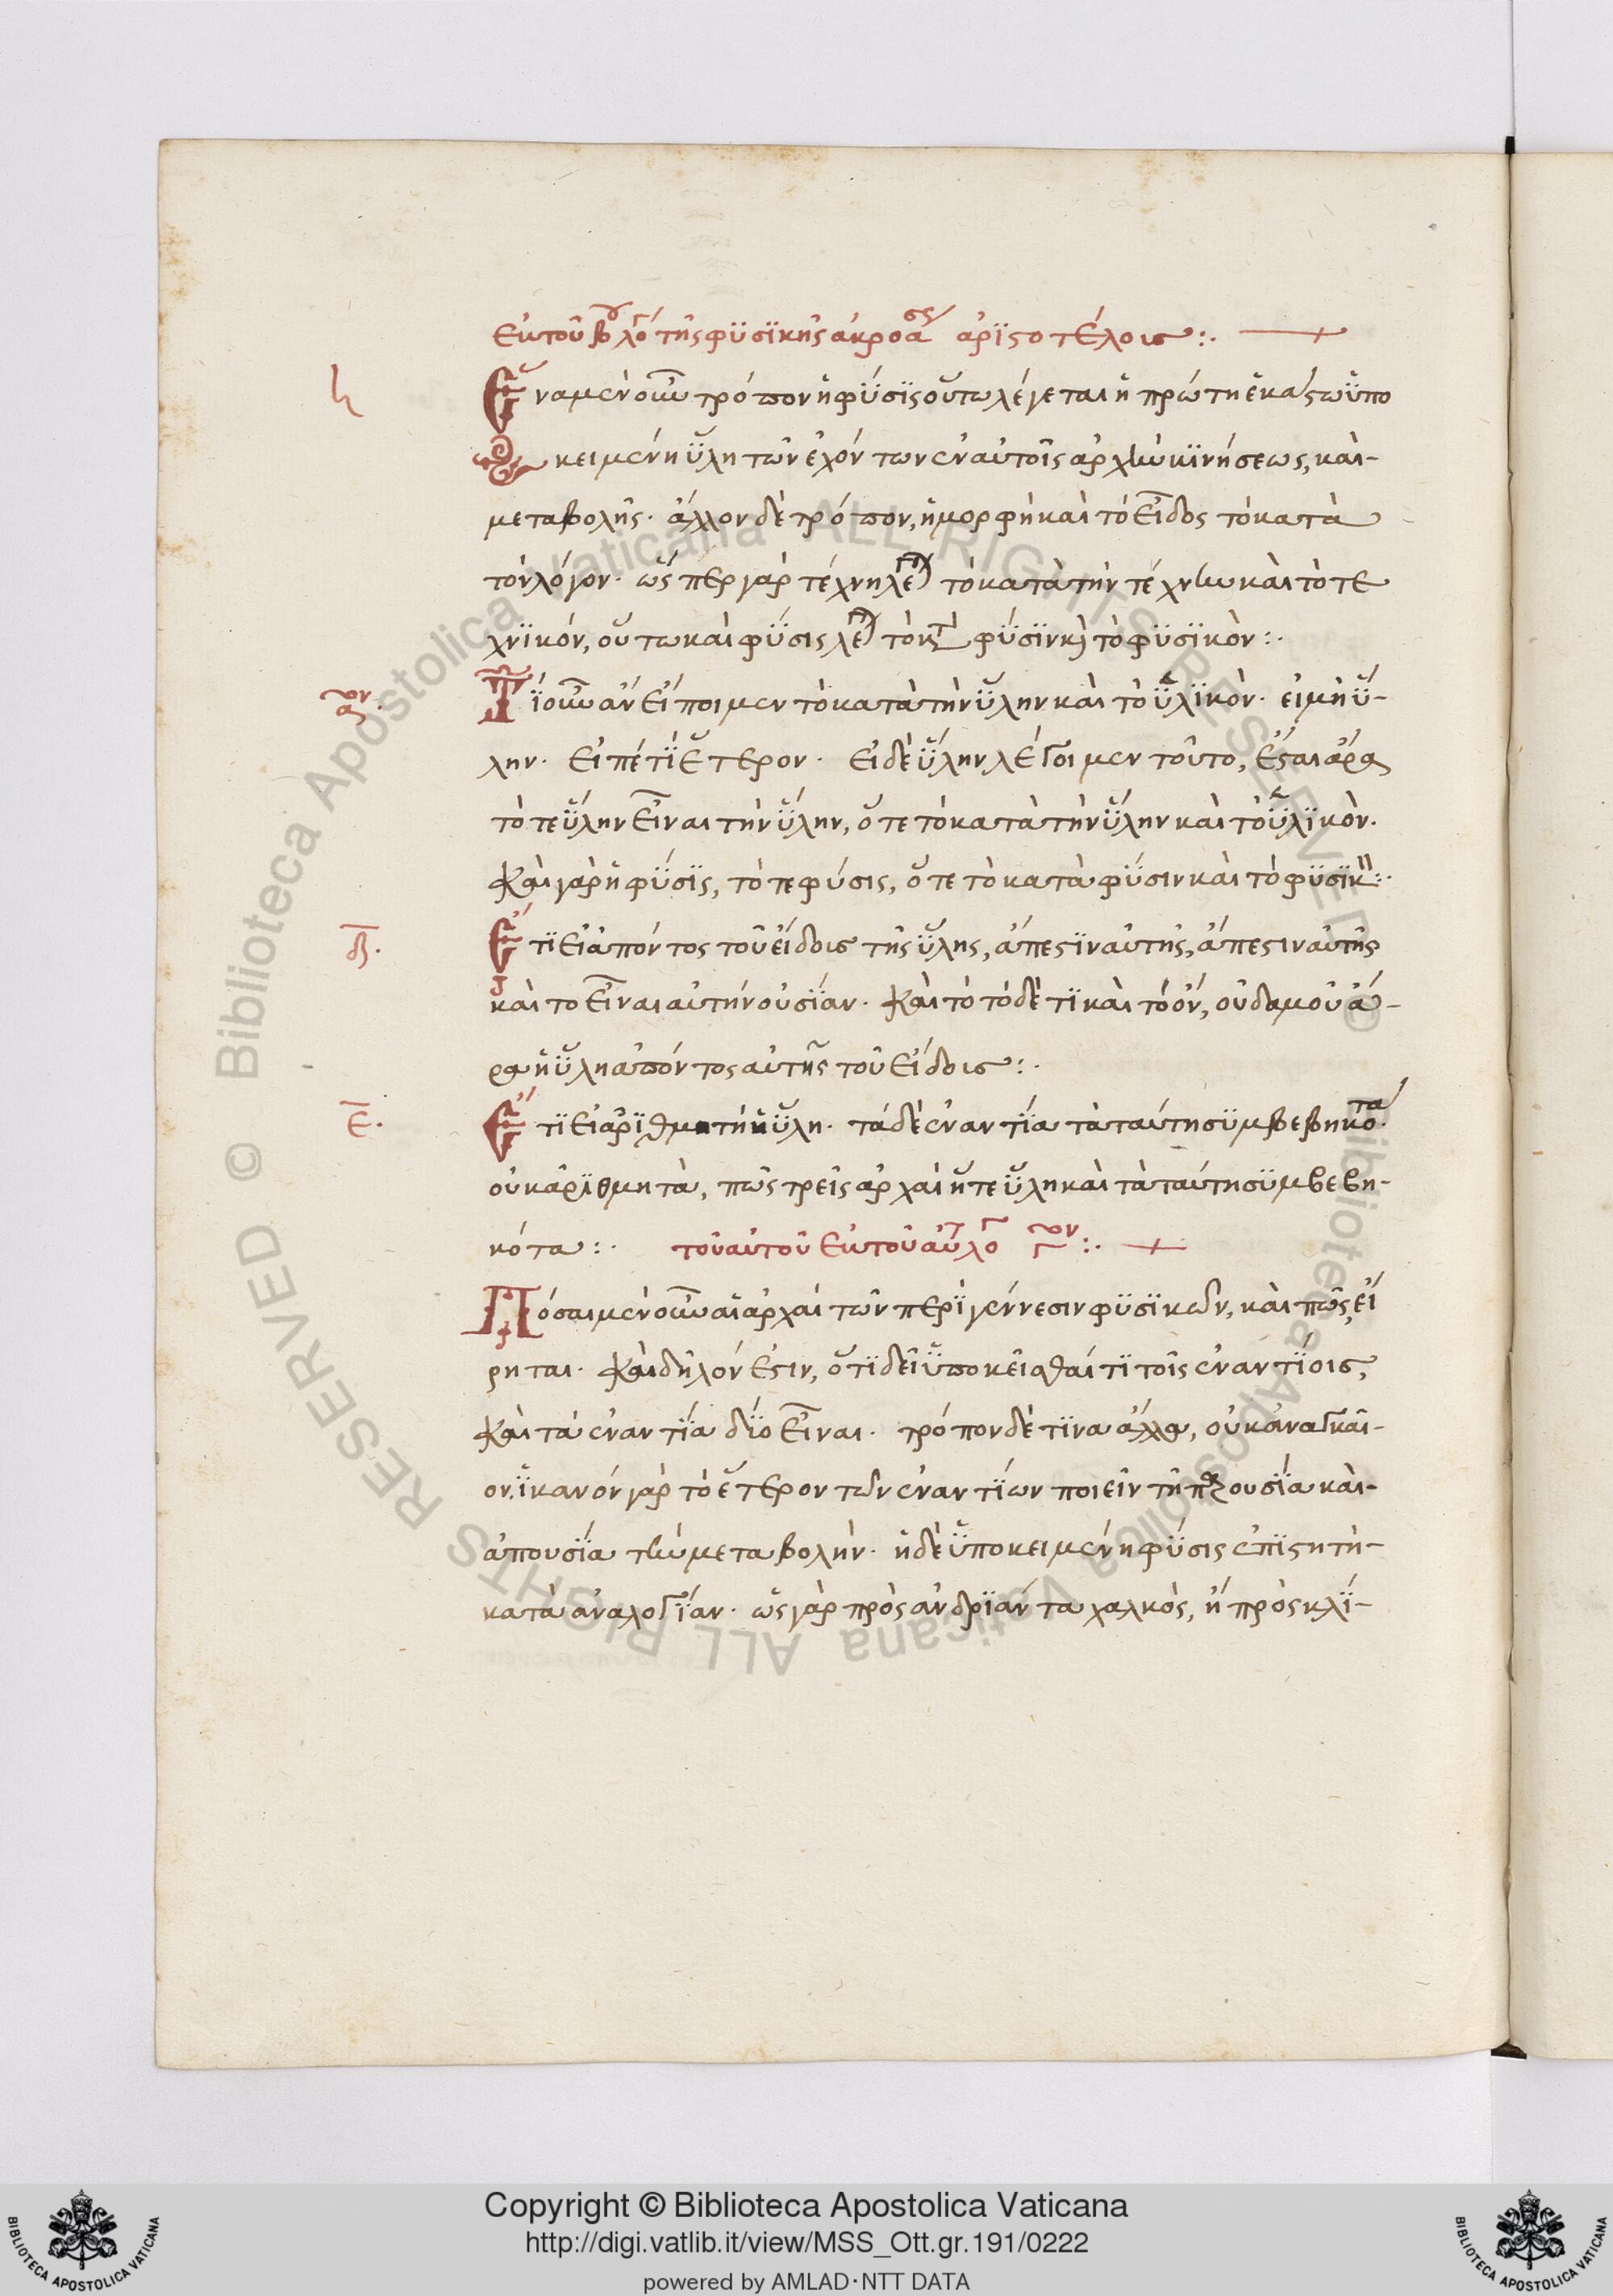 ἐκ τοῦ βου λό τῆς φϋσϊκῆς ἀκροάσε ἀρϊστοτέλους :. —+
Ἕνα μὲν οὖν τρόπον ἡ φύσϊς οὕτω λέγεται ἡ πρώτη ἑκάστω ὑπο
κειμένη ὕλη τῶν ἐχόντων ἐν αὑτοῖς ἀρχὴν κϊνήσεως, καὶ-
μεταβολῆς· ἄλλον δὲ τρόπον, ἡ μορφὴ καὶ τὸ εἶδος τὸ κατὰ
τὸν λόγον· ὥσπερ γὰρ τέχνη λέγεται τὸ κατὰ τὴν τέχνην καὶ τὸ τε
χνϊκόν, οὕτω καὶ φύσις λέγεται τὸ κατὰ φύσϊν κὶ τὸ φϋσϊκὸν :.
αον.
Τί οὖν ἂν εἴποιμεν τὸ κατὰ τὴν ὕλην καὶ τὸ ὑλϊκὸν· εἰ μὴ ὕ-
λην· εἰπέ τϊ ἕτερον· εἰ δὲ ὕλην λέγοιμεν τοῦτο, ἔσται ἄρα
τό τε ὕλην εἶναι τὴν ὕλην, ὅ τε τὸ κατὰ τὴν ὕλην καὶ τὸ ὑλϊκὸν.
καὶ γὰρ ἡ φύσϊς, τό τε φύσις, ὅ τε τὸ κατὰ φύσιν καὶ τὸ φϋσϊκὸν :.
δ.
Ἔτϊ εἰ ἀπόντος τοῦ εἴδους τῆς ὕλης, ἄπεστϊν αὐτῆς, ἄπεστιν αὐτῆς
καὶ το εἶναι αὐτὴν οὐσίαν· καὶ τὸ τόδε τϊ καὶ τὸ ὄν, οὐδαμοῦ ἄ-
ρα ἡ ὕλη ἀπόντος αὐτῆς τοῦ εἴδους :.
ε.
Ἔτϊ εἰ ἀρϊθμητὴ ἡ ὕλη· τὰ δὲ ἐναντία τὰ ταύτη συμβεβηκότα·
οὐκ ἀρϊθμητὰ, πῶς τρεῖς ἀρχαὶ ἥ τε ὕλη καὶ τὰ ταύτη συμβεβη-
κότα :. τοῦ αὐτοῦ ἐκ τοῦ αὐτ λό γον :. —+
Πόσαι μὲν οὖν αἱ ἀρχαὶ τῶν περϊ γέννεσιν φϋσϊκων, καὶ πῶς, εἴ
ρηται· καὶ δῆλόν ἐστιν, ὅτϊ δεῖ ὑποκεῖσθαί τϊ τοῖς ἐναντίοις,
καὶ τὰ ἐναντία δύο εἶναι· τρόπον δὲ τϊνα ἄλλα, οὐκ ἀναγκαῖ-
ον. ἱκανὸν γὰρ τὸ ἕτερον τῶν ἐναντίων ποιεῖν τῆ παρουσία καὶ-
ἀπουσία τὴν μεταβολὴν· ἡ δὲ ὑποκειμένη φύσις ἐπϊστητὴ-
κατὰ ἀναλογίαν· ὡς γὰρ πρὸς ἀνδρϊάντα χαλκὸς, ἢ πρὸς κλί-
Copyright © Biblioteca Apostolica Vaticana
http://digi.vatlib.it/view/MSS_Ott.gr.191/0222
powered by AMLAD·NTT DATA
BIBLIOTECA APOSTOLICA VATICANA
BIBLIOTECA APOSTOLICA VATICANA
© Biblioteca Apostolica Vaticana ALL RIGHTS RESERVED
© Biblioteca Apostolica Vaticana ALL RIGHTS RESERVED